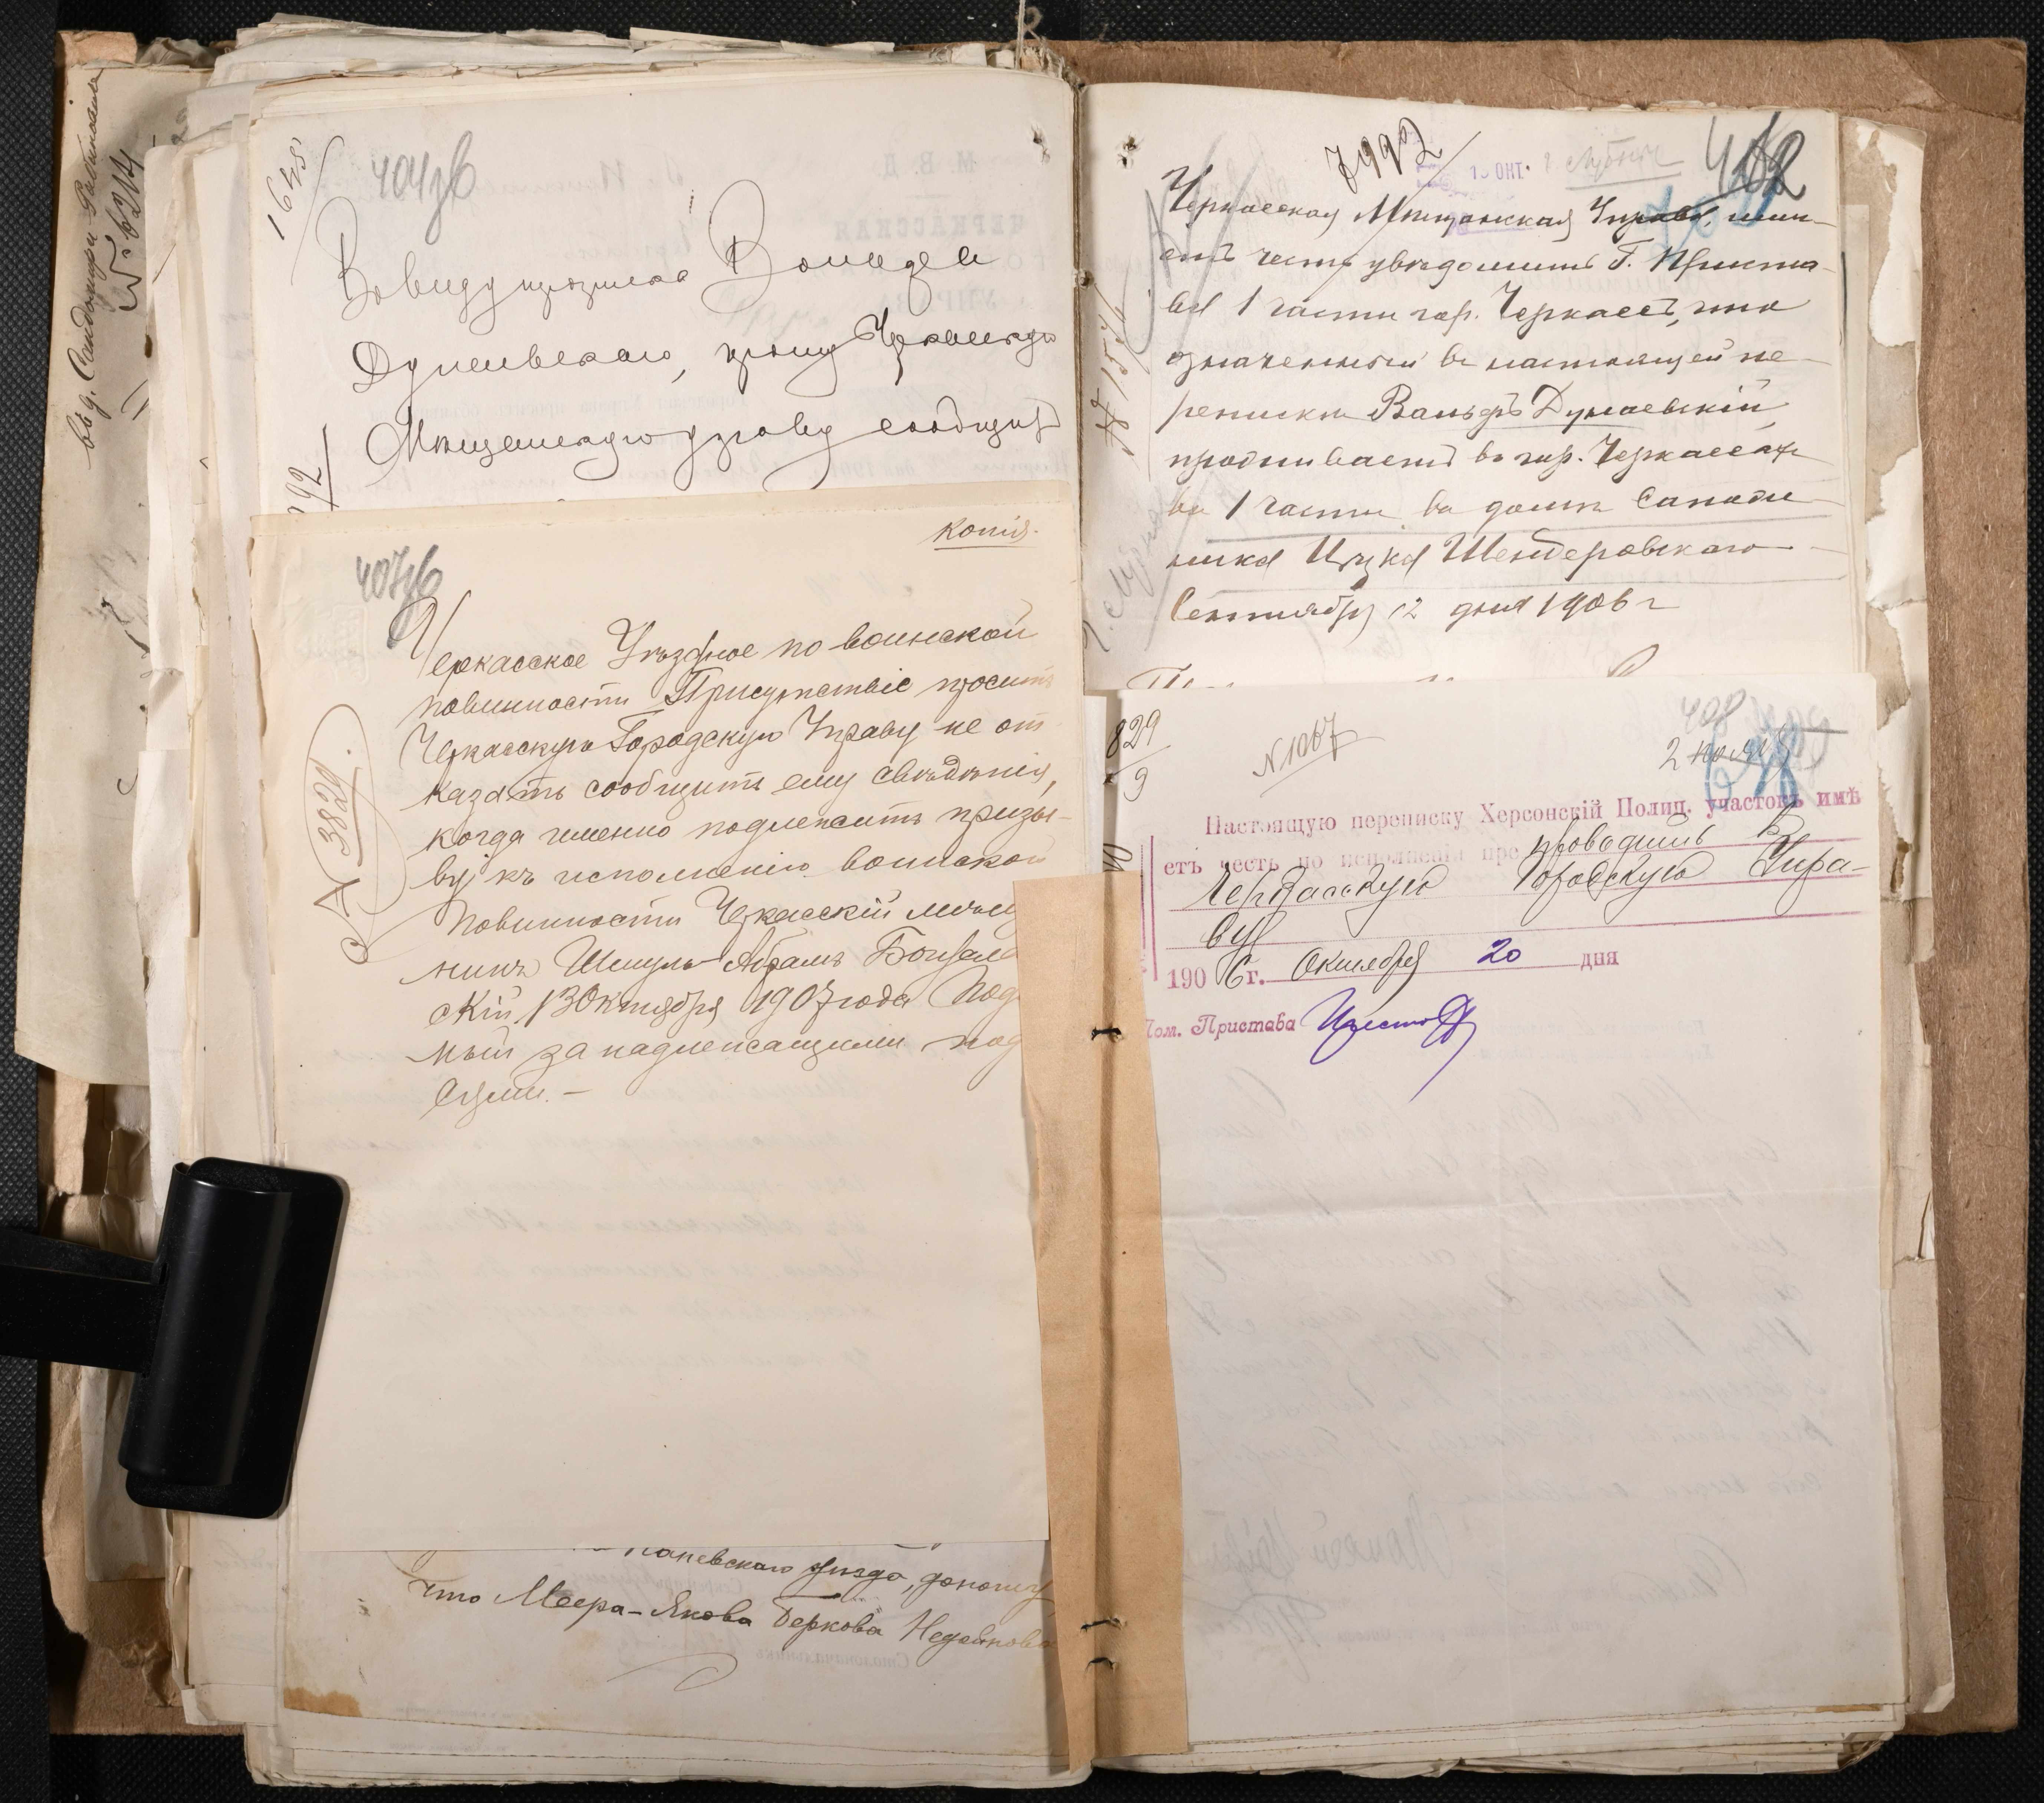 въ д. Сандомира Рабиновича
№ 6214
1645
404 об
Въ виду прозшеа Вольдеа
Дунаевскаго, прошу Черкасскую
Мѣщанскую управу сообщить
92
Копія.
407 об
Черкасское Уѣздное по воинской
повинности Присутствіе проситъ
Черкасскую Городскую Управу не от
казать сообщить ему свѣдѣнія,
когда именно подлежитъ призы-
ву къ исполненію воинской
повинности Черкасскій мѣщ
нинъ Шмуль-Абрамъ
скій, 13 Октября 1907 года Под
ный за надлежащими под
сями. –
№ 3829.
Каневскаго уѣзда, доношу
что Меера-Якова Беркова
7992
15 ОКТ.
402
Черкасская Мѣщанская Управа, имѣ-
етъ честь увѣдомить Г. Приста-
ва 1 части гор. Черкассъ, что
означенный въ настоящей пе-
репискѣ Вольфъ Дунаевскій,
проживаетъ въ гор. Черкассахъ
въ 1 части въ домѣ Сапож
ника Ицка Шендеровскаго
Сентября 12 дня 1906 г
№ 1576
829
9
N 1067
408
Настоящую переписку Херсонскій Полиц. участокъ имѣ
етъ честь по исполненіи пре проводить въ
Черкасскую Городскую Упра-
ву
190 6 г. Октября 20 дня
Пом. Пристава